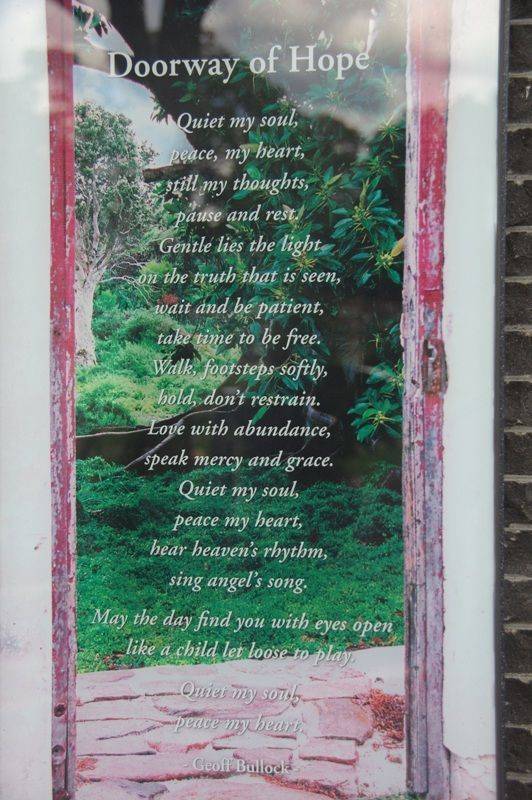 Doorway of Hope
Quiet my soul,
peace, my heart,
still my thoughts,
pause and rest.
Gentle lies the light
on the truth that is seen,
wait and be patient,
take time to be free.
Walk, footsteps softly,
hold, don't restrain.
Love with abundance,
speak mercy and grace.
Quiet my soul,
peace my heart,
hear heaven's rhythm,
sing angel's song.
May the day find you with eyes open
like a child let loose to play.
Quiet my soul,
peace my heart.
- Geoff Bullock -